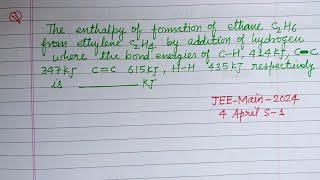 Q
The enthalpy of formation of ethane C2H6
from ethylene C2H4 by addition of hydrogen
where the bond energies of C-H, 414 KJ, C-C
347KJ C=C 615KJ, H-H 435KJ respectively
is ________ KJ
JEE-Main-2024
4 April S-1